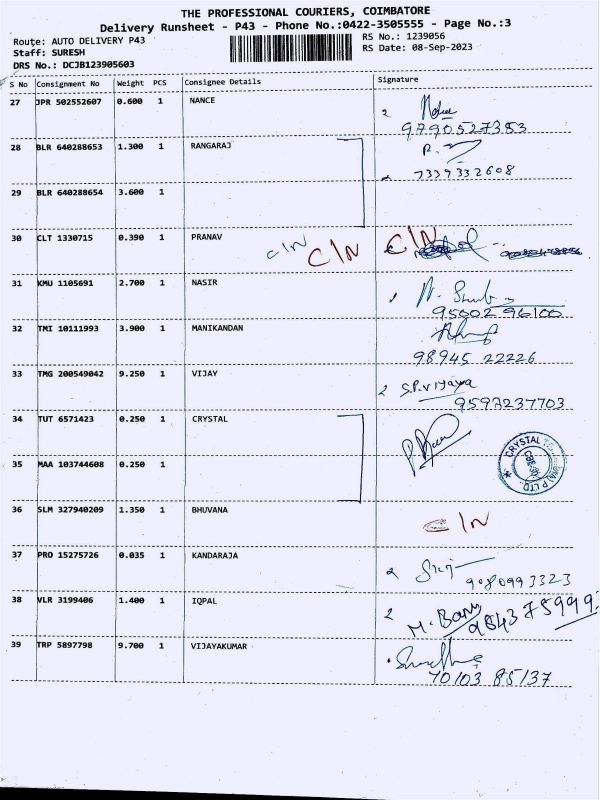 THE PROFESSIONAL COURIERS, COIMBATORE
Delivery Runsheet - P43 - Phone No.:0422-3505555 - Page No.:3
Route: AUTO DELIVERY P43 RS No.: 1239056
Staff: SURESH RS Date: 08-Sep-2023
DRS No.: DCJB123905603
S No Consignment No Weight PCS Consignee Details Signature
27 JPR 502552607 0.600 1 NANCE 2
9790527353
28 BLR 640288653 1.300 1 RANGARAJ
7339332608
29 BLR 640288654 3.600 1
30 CLT 1330715 0.390 1 PRANAV C/N C/N C/N
31 KMU 1105691 2.700 1 NASIR
95002 96100
32 TMI 10111993 3.900 1 MANIKANDAN
98945 22226
33 TMG 200549042 9.250 1 VIJAY 2 S.P.Vijaya
9597237703
34 TUT 6571423 0.250 1 CRYSTAL
CRYSTAL
P LTD.
35 MAA 103744608 0.250 1
36 SLM 327940209 1.350 1 BHUVANA C/N
37 PRO 15275726 0.035 1 KANDARAJA
9080993323
38 VLR 3199406 1.400 1 IQPAL 2 M. Banu
98437 5999
39 TRP 5897798 9.700 1 VIJAYAKUMAR
70103 85137